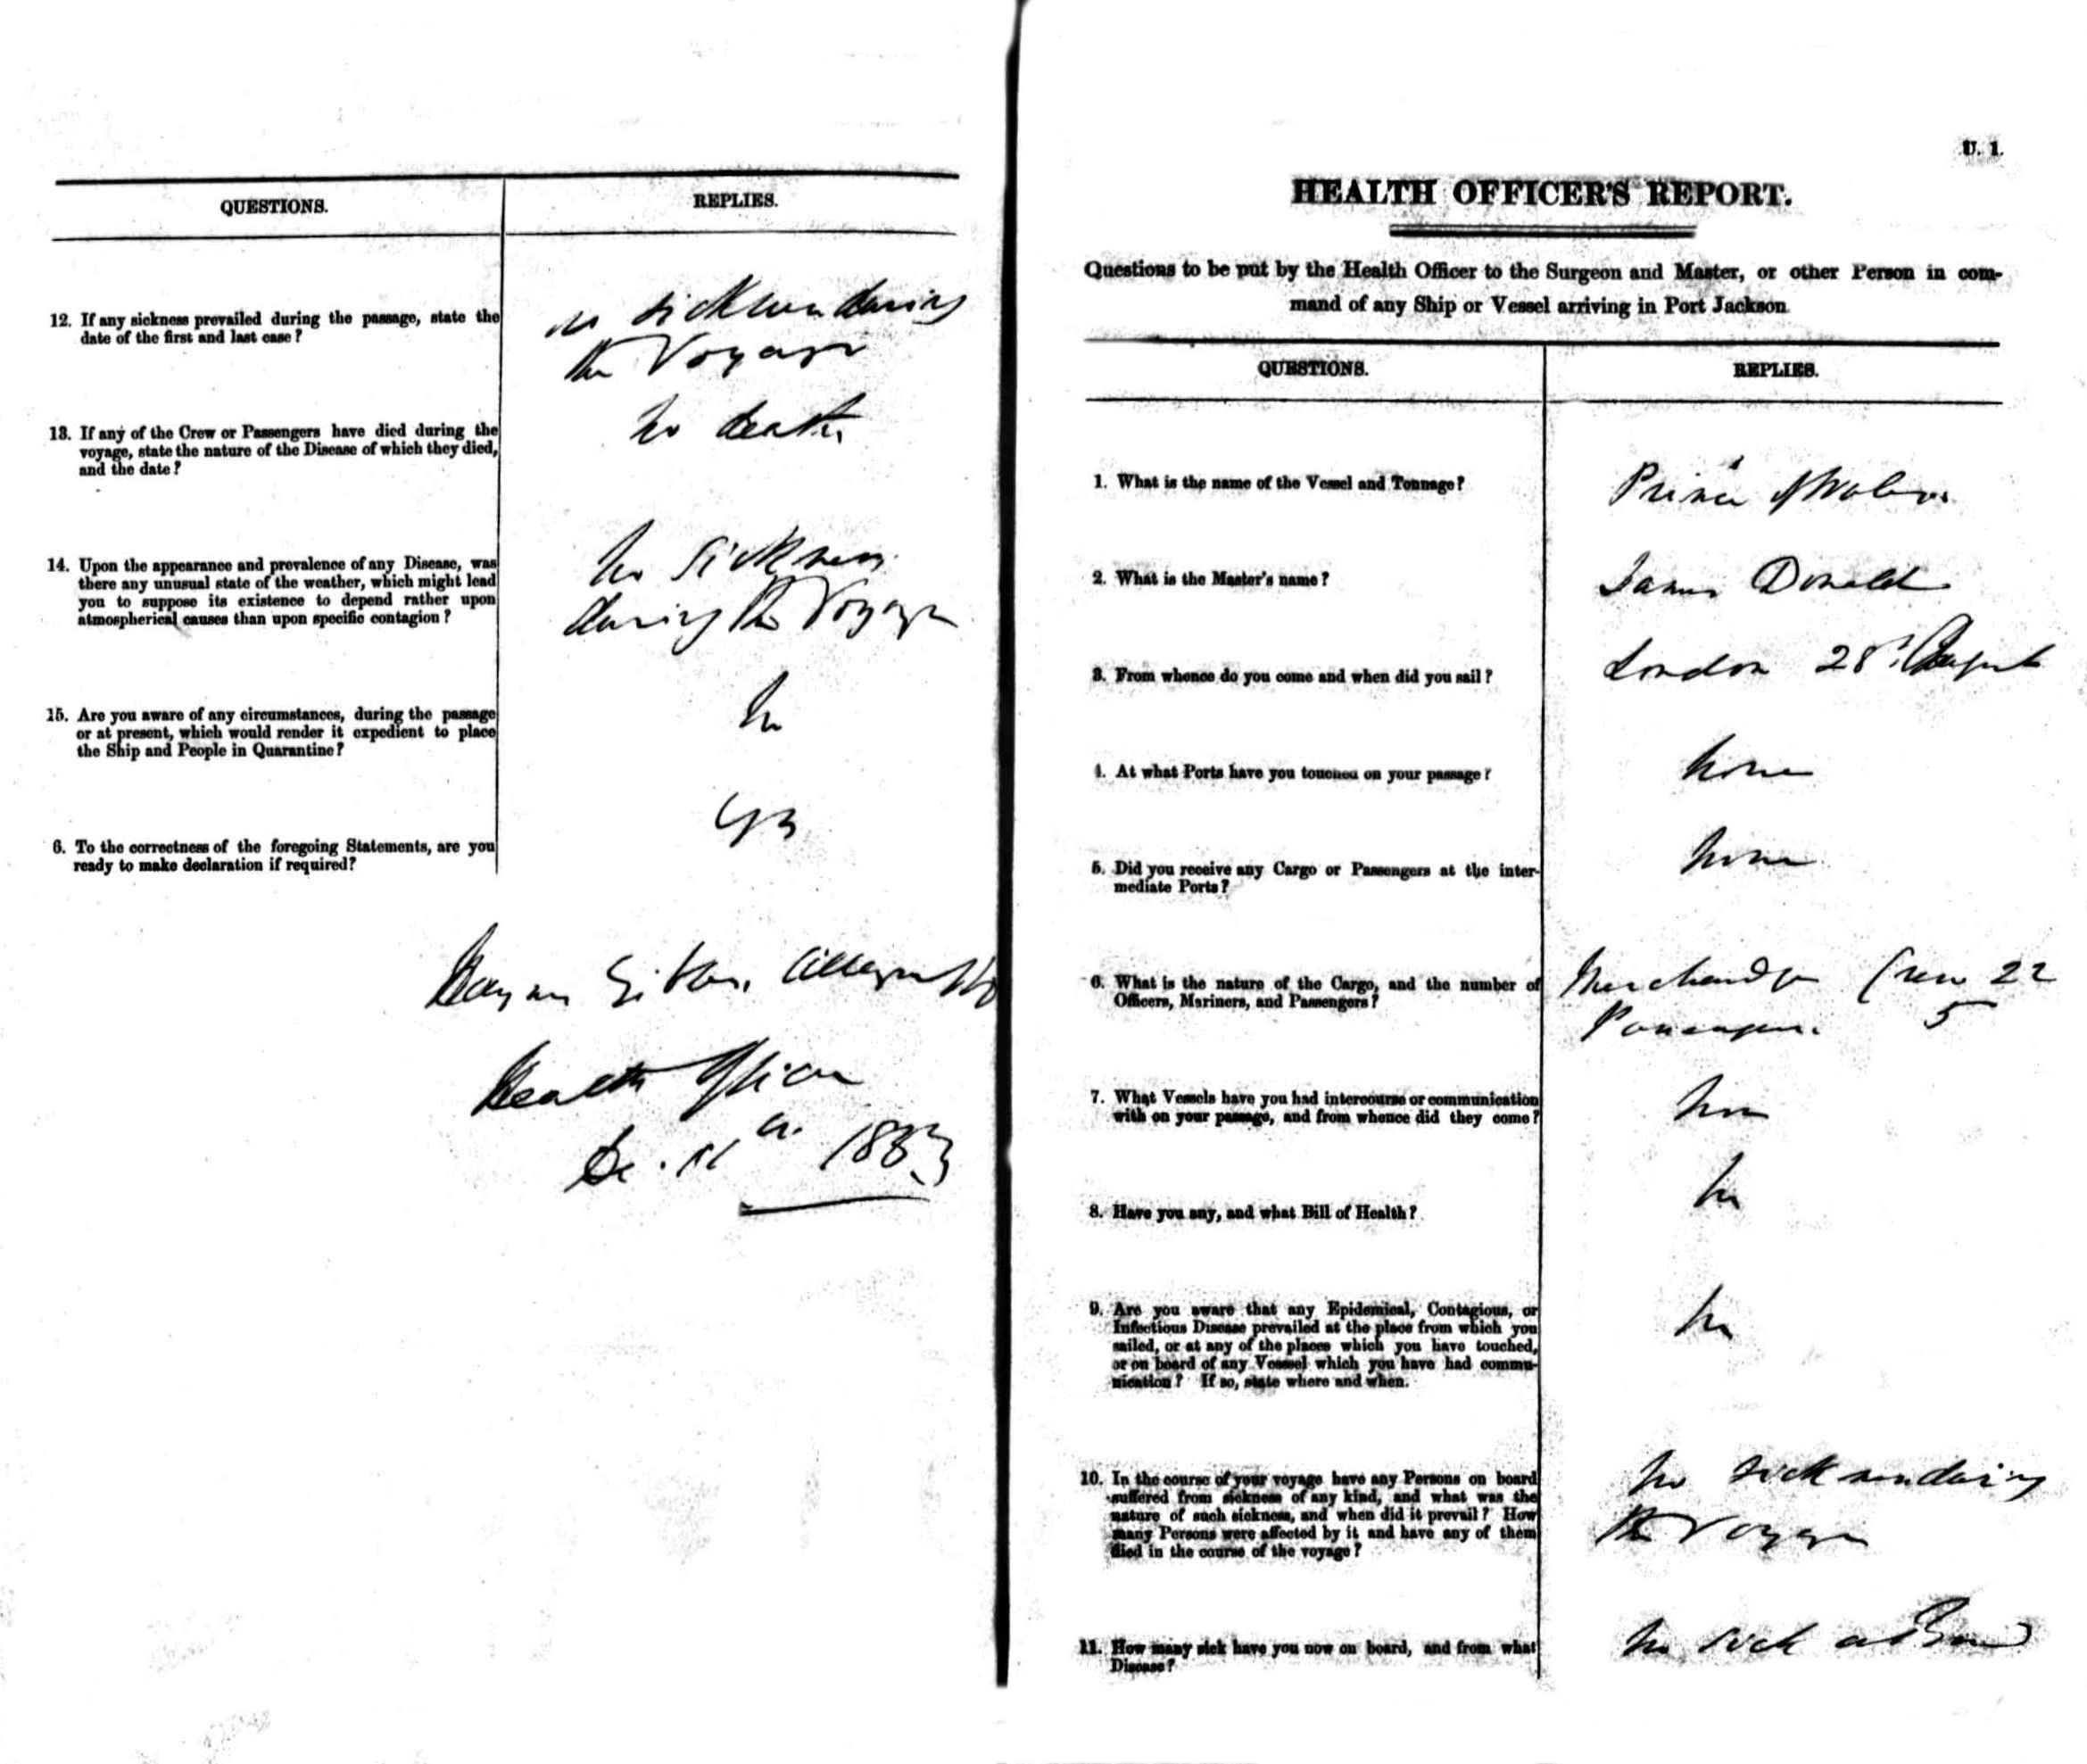 QUESTIONS.
REPLIES.
12. If any sickness prevailed during the passage, state the
date of the first and last case?
no sickness during
the Voyage
13. If any of the Crew or Passengers have died during the
voyage, state the nature of the Disease of which they died,
and the date?
No deaths
14. Upon the appearance and prevalence of any Disease, was
there any unusual state of the weather, which might lead
you to suppose its existence to depend rather upon
atmospherical causes than upon specific contagion?
No Sickness
during the Voyage
15. Are you aware of any circumstances, during the passage
or at present, which would render it expedient to place
the Ship and People in Quarantine?
No
6. To the correctness of the foregoing Statements, are you
ready to make declaration if required?
Yes
Health Officer
1883
U. 1.
HEALTH OFFICER'S REPORT.
Questions to be put by the Health Officer to the Surgeon and Master, or other Person in com-
mand of any Ship or Vessel arriving in Port Jackson.
QUESTIONS.
REPLIES.
1. What is the name of the Vessel and Tonnage?
Prince of Wales
2. What is the Master's name?
James Donald
3. From whence do you come and when did you sail?
London 28th August
4. At what Ports have you touched on your passage?
None
5. Did you receive any Cargo or Passengers at the inter-
mediate Ports?
None
6. What is the nature of the Cargo, and the number of
Officers, Mariners, and Passengers?
Merchandise Crew 22
Passengers 5
7. What Vessels have you had intercourse or communication
with on your passage, and from whence did they come?
None
8. Have you any, and what Bill of Health?
No
9. Are you aware that any Epidemical, Contagious, or
Infectious Disease prevailed at the place from which you
sailed, or at any of the places which you have touched,
or on board of any Vessel which you have had commu-
nication? If so, state where and when.
No
10. In the course of your voyage have any Persons on board
suffered from sickness of any kind, and what was the
nature of such sickness, and when did it prevail? How
many Persons were affected by it and have any of them
died in the course of the voyage?
No sickness during
the Voyage
11. How many sick have you now on board, and from what
Disease?
No sick on Board